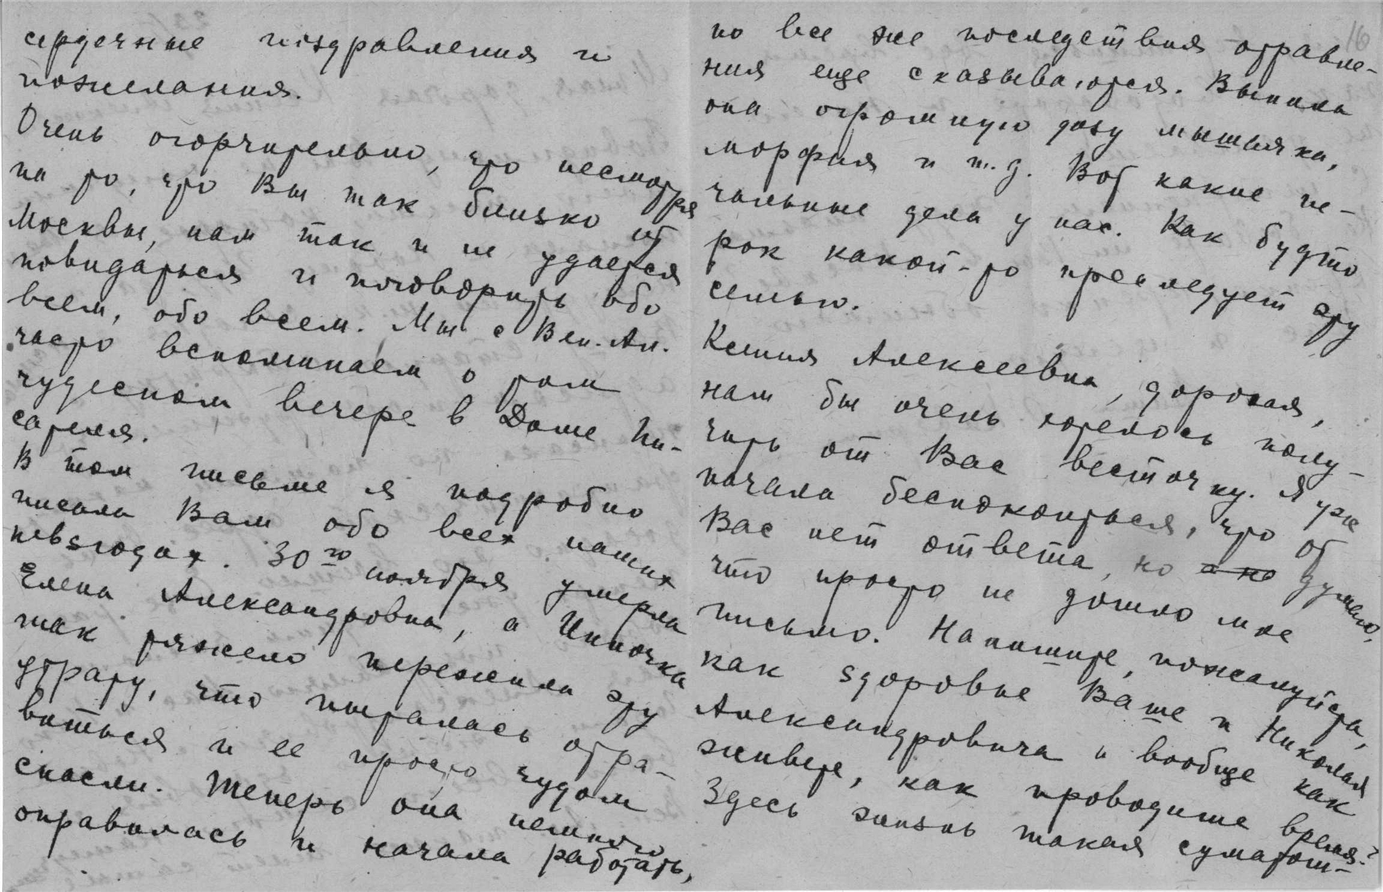 сердечные поздравления и
пожелания.
Очень огорчительно, что несмотря
на то, что Вы так близко от
Москвы, нам так и не удается
повидаться и поговорить обо
всем, обо всем. Мы с Вен. Ал.
часто вспоминаем о том
чудесном вечере в Доме Пи-
сателя.
В том письме я подробно
писала Вам обо всех наших
невзгодах. 30го ноября умерла
Елена Александровна, а Инночка
так тяжело пережила эту
утрату, что пыталась отра-
виться и ее просто чудом
спасли. Теперь она немного
оправилась и начала работать,
16
но все же последствия отравле-
ния еще сказываются. Выпила
она огромную дозу мышьяка,
морфия и т.д. Вот какие пе-
чальные дела у нас. Как будто
рок какой-то преследует эту
семью.
Ксения Алексеевна, дорогая,
нам бы очень хотелось полу-
чить от Вас весточку. Я уже
начала беспокоиться, что от
Вас нет ответа, но думаю,
что просто не дошло мое
письмо. Напишите, пожалуйста,
как здоровье Ваше и Николая
Александровича и вообще как
живете, как проводите время?
Здесь жизнь такая суматош-